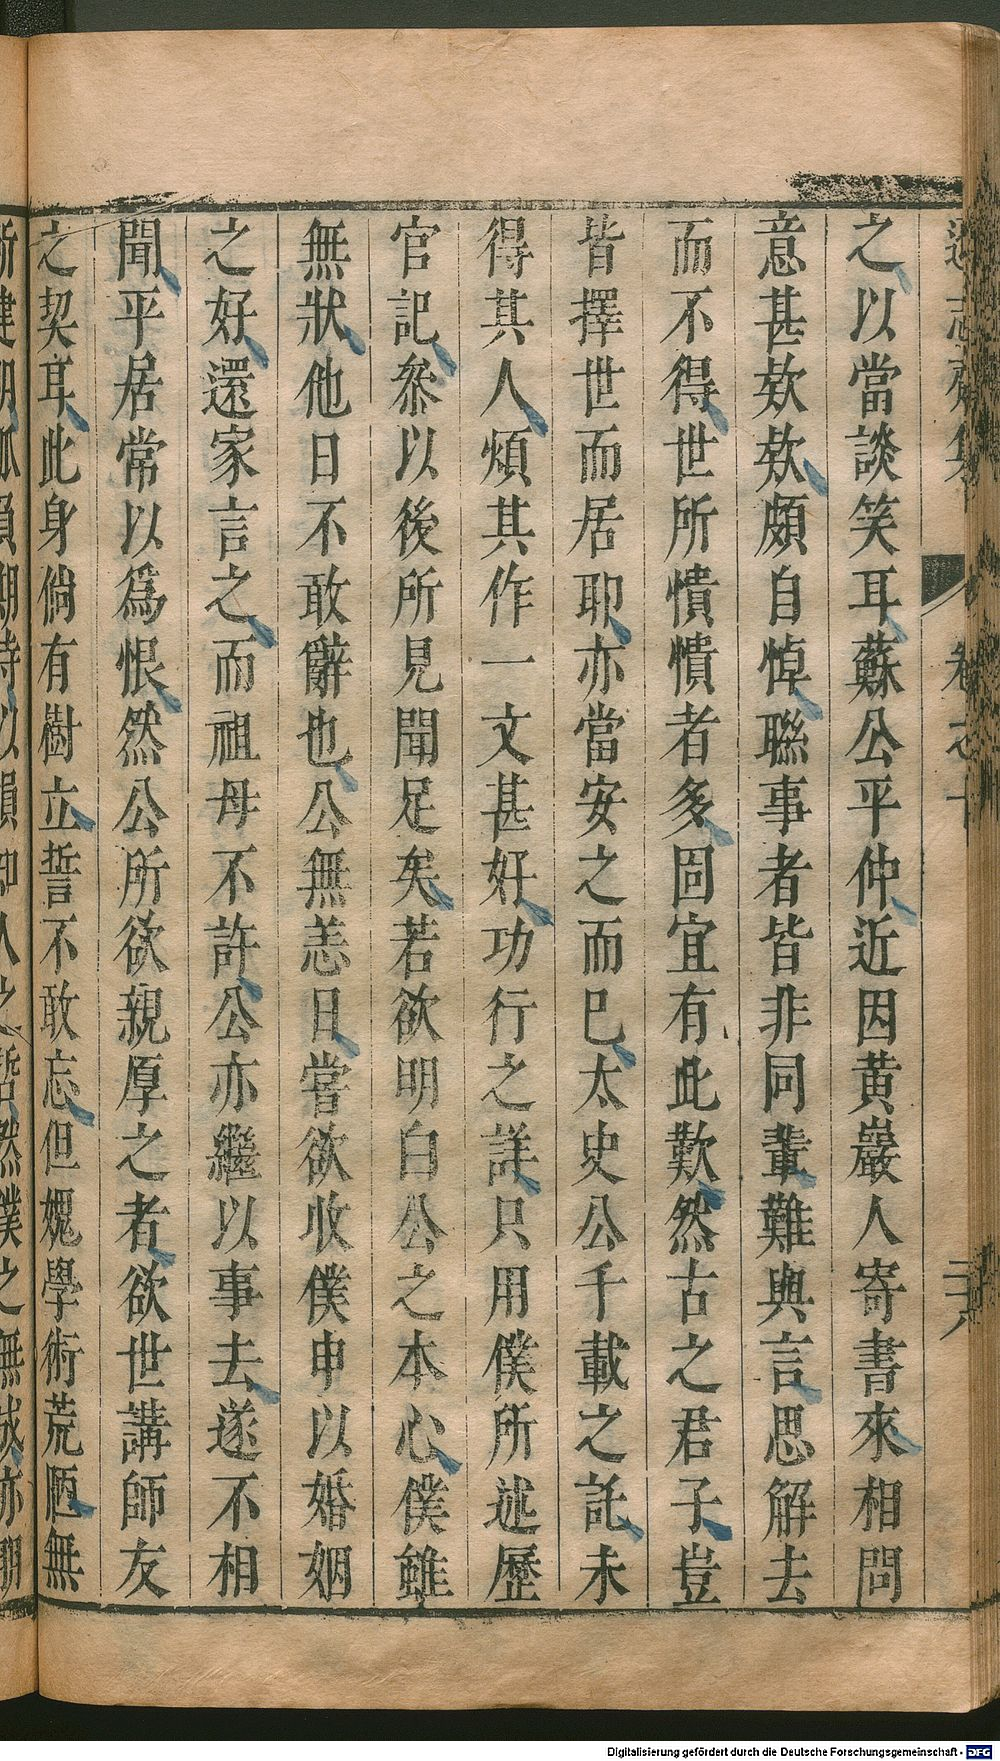 之以當談笑耳蘇公平仲近因黃巖人寄書來相問
意甚欵欵頗自悼聯事者皆非同輩難與言思解去
而不得世所憒憒者多固宜有此歎然古之君子豈
皆擇世而居耶亦當安之而巳太史公千載之託未
得其人煩其作一文甚好功行之詳只用僕所述歷
官記叅以後所見聞足矣若欲明白公之本心僕雖
無狀他日不敢辭也公無恙日嘗欲收僕申以婚姻
之好還家言之而祖母不許公亦繼以事去遂不相
聞平居常以爲恨然公所欲親厚之者欲世講師友
之契耳此身倘有樹立誓不敢忘但媿學術荒陋無
志齋集
卷之十
二十八
Digitalisierung gefördert durch die Deutsche Forschungsgemeinschaft - DFG